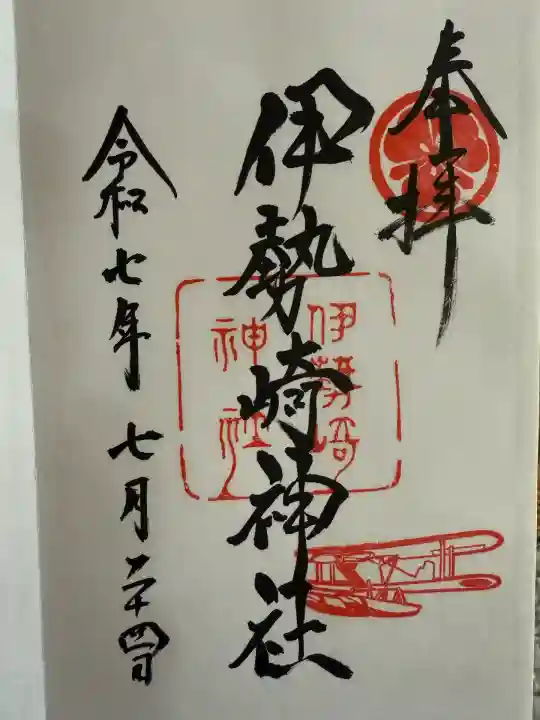 奉拝
伊勢崎神社
伊勢崎
神社
令和七年七月二十四日